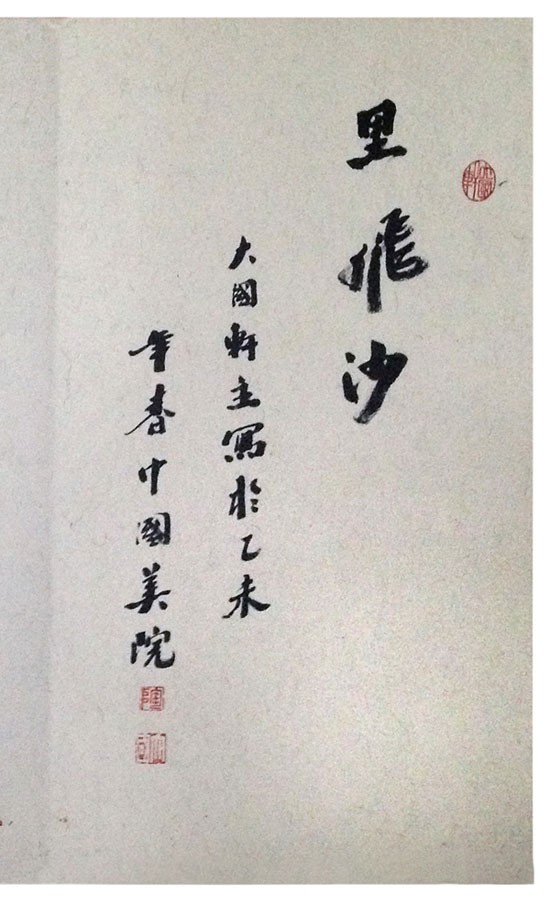 里飛沙
大國軒主寫於乙未
年春中國美院